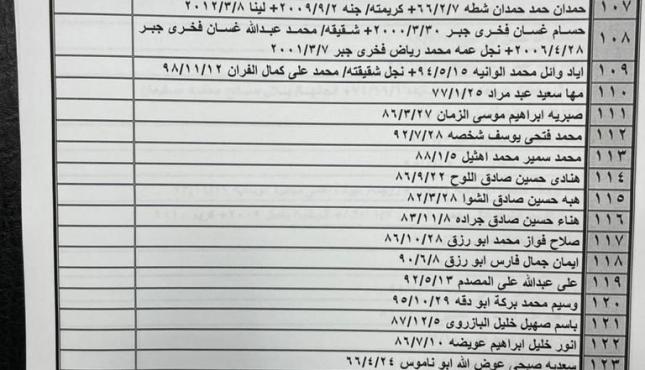 ١٠٧ حمدان حمد حمدان شطه ٦٦/٢/٧+ كريمته/ جنه ٢٠٠٩/٩/٢+ لينا ٢٠١٢/٣/٨
١٠٨ حسام غسان فخرى جبر ٢٠٠٠/٣/٣٠+ شقيقه/ محمد عبدالله غسان فخرى جبر
٢٠٠٦/٤/٢٨+ نجل عمه محمد رياض فخرى جبر ٢٠٠١/٣/٧
١٠٩ اياد وائل محمد الوانيه ٩٤/٥/١٥+ نجل شقيقته/ محمد على كمال الفران ٩٨/١١/١٢
١١٠ مها سعيد عبد مراد ٧٧/١/٢٥
١١١ صبريه ابراهيم موسى الزمان ٨٦/٣/٢٧
١١٢ محمد فتحى يوسف شخصه ٩٢/٧/٢٨
١١٣ محمد سمير محمد اهثيل ٨٨/١/٥
١١٤ هنادى حسين صادق اللوح ٨٦/٩/٢٢
١١٥ هبه حسين صادق الشوا ٨٢/٣/٢٨
١١٦ هناء حسين صادق جراده ٨٣/١١/٨
١١٧ صلاح فواز محمد ابو رزق ٨٦/١٠/٢٨
١١٨ ايمان جمال فارس ابو رزق ٩٠/٦/٨
١١٩ على عبدالله على المصدم ٩٢/٥/١٣
١٢٠ وسيم محمد بركة ابو دقه ٩٥/١٠/٢٩
١٢١ باسم صهيل خليل البازروى ٨٧/١٢/٥
١٢٢ انور خليل ابراهيم عويضه ٨٦/٧/١٠
١٢٣ سعديه صبحى عوض الله ابو ناموس ٦٦/٤/٢٤